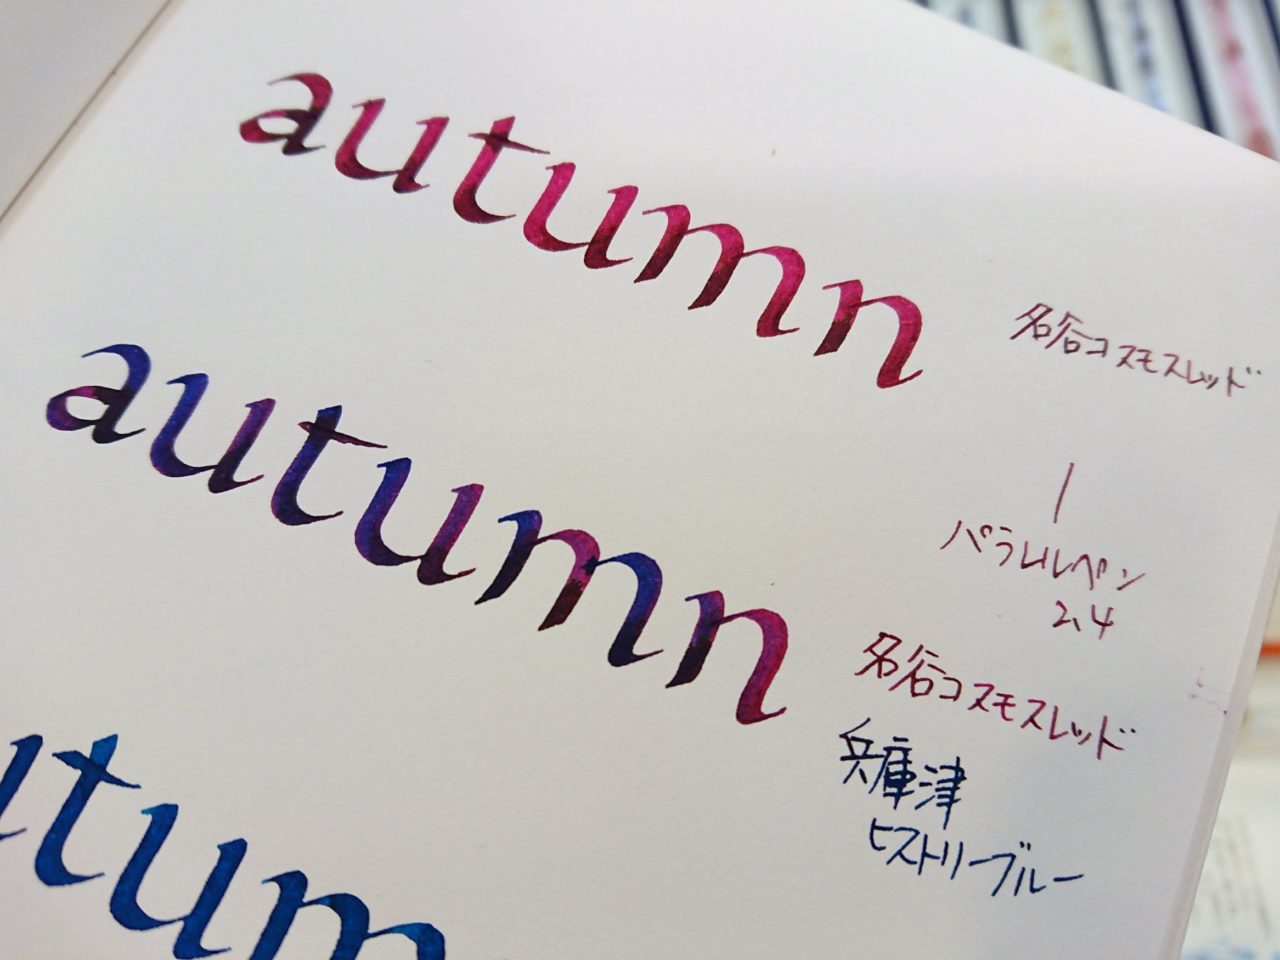 autumn
名谷コスモスレッド
autumn
パラレルペン
2.4
名谷コスモスレッド
兵庫津
ヒストリーブルー
utum